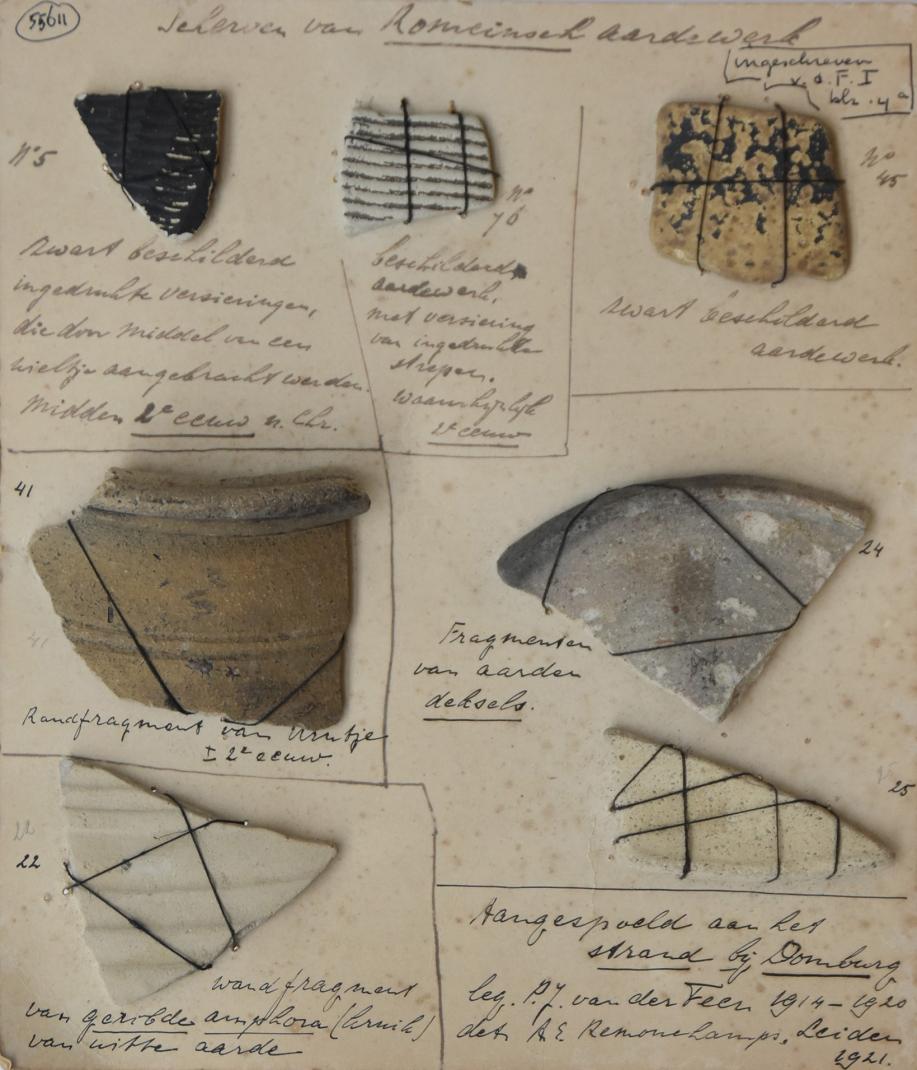 55611
Scherven van Romeinsch aardewerk
ingeschreven
v. d. F. I
blz. 4a
No 5
No
76
No
45
zwart beschilderd
ingedrukte versieringen,
die door middel van een
wieltje aangebracht werden.
Midden 2e eeuw n. Chr.
beschilderd
aardewerk,
met versiering
van ingedrukte
strepen.
waarschijnlijk
2e eeuw
zwart beschilderd
aardewerk.
41
41
Randfragment van Urntje
I 2e eeuw.
24
Fragmenten
van aarden
deksels.
25
25
22
22
wandfragment
van geribde amphora (kruik)
van witte aarde
Aangespoeld aan het
strand bij Domburg
leg. P. J. van der Feen 1914-1920
det. A. E. Remouchamps, Leiden
1921.